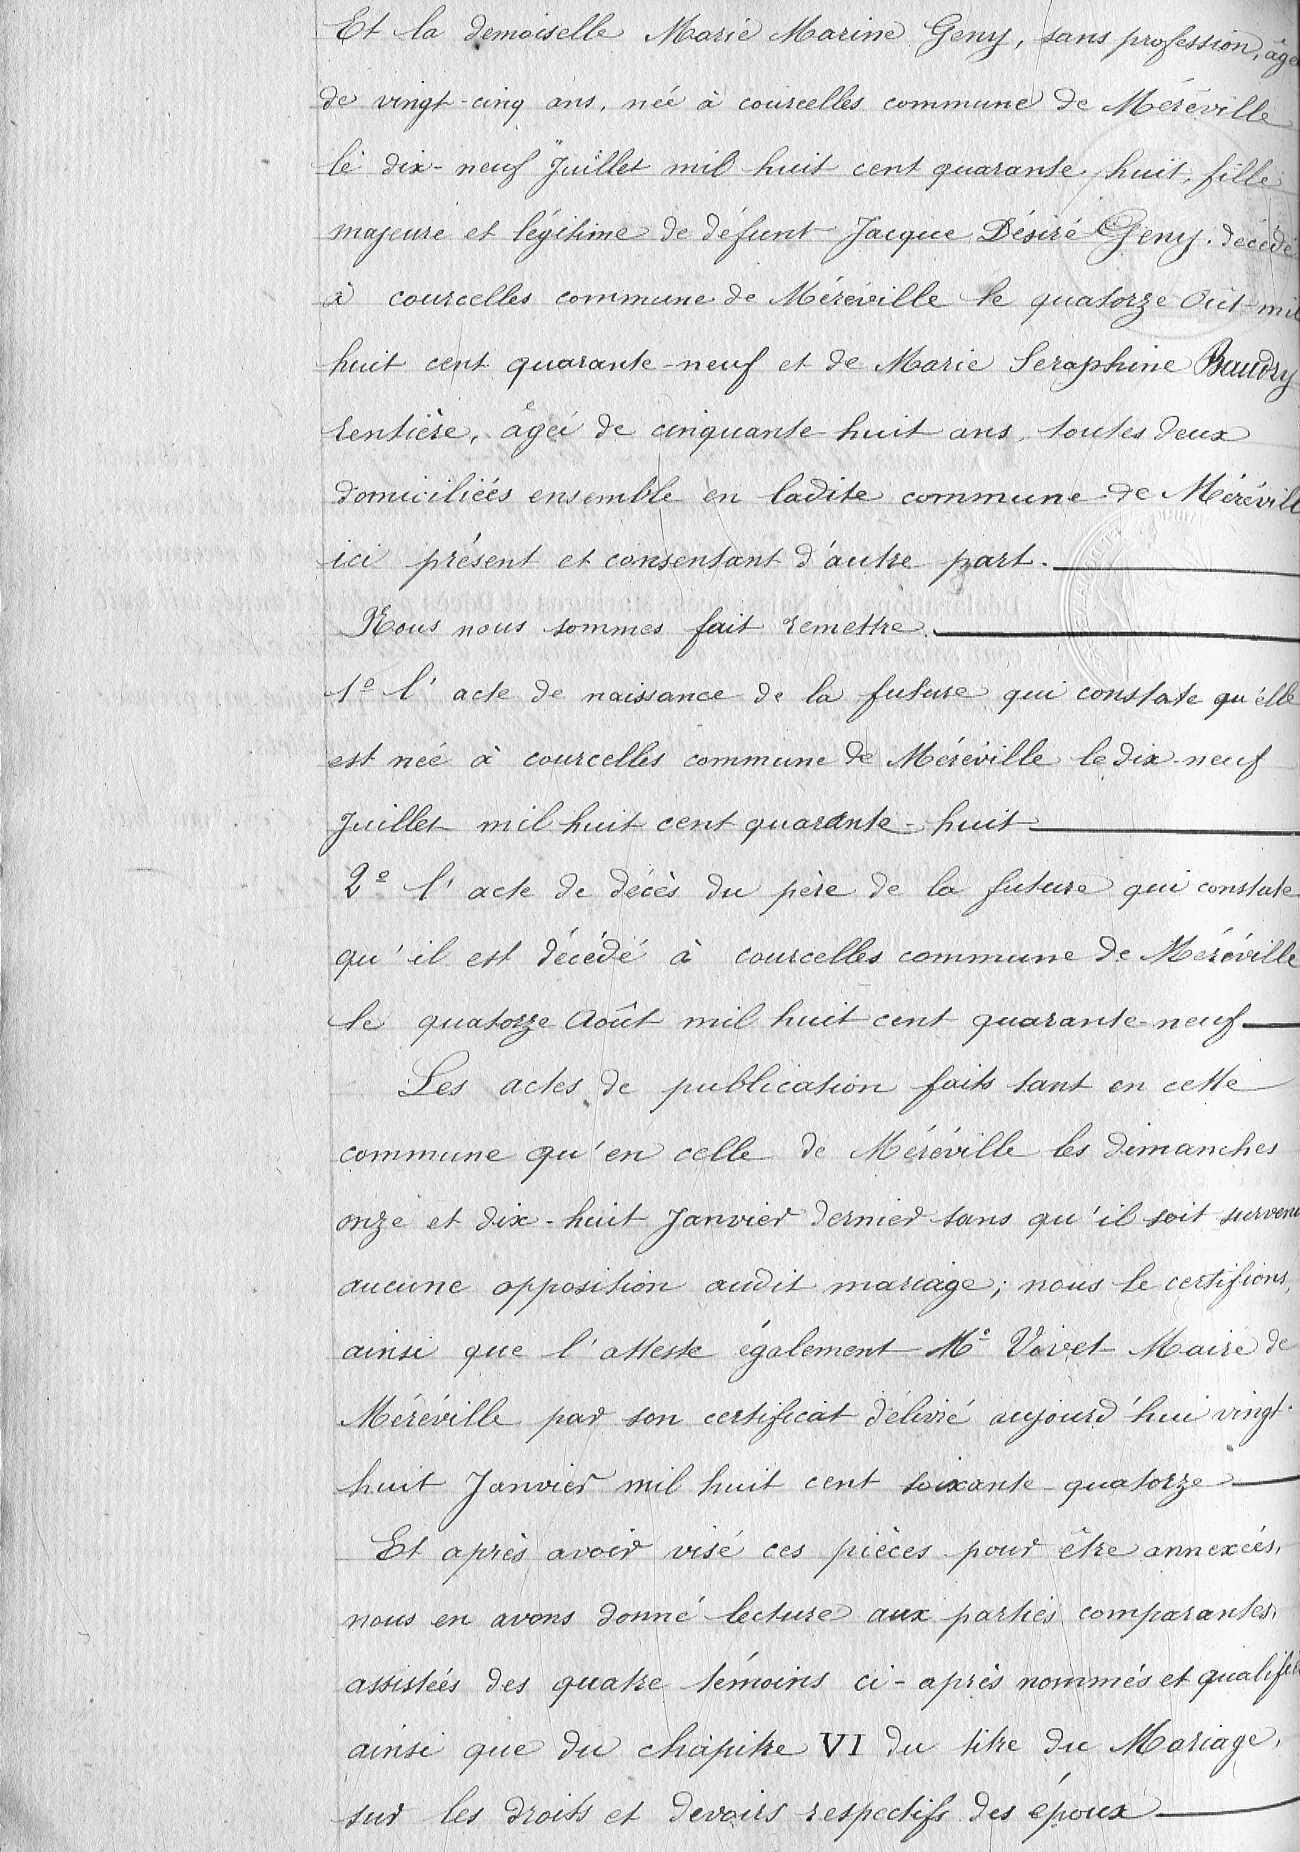 Et la demoiselle Marie Marine Geny, sans profession, âgée
de vingt-cinq ans, née à courcelles commune de Méréville
le dix-neuf Juillet mil huit cent quarante huit, fille
majeure et légitime de défunt Jacque Désiré Geny. décédé
à courcelles commune de Méréville le quatorze Oût mil
huit cent quarante-neuf et de Marie Seraphine Baudry
rentière, âgée de cinquante-huit ans, toutes deux
domiciliées ensemble en ladite commune de Mérévill
ici présent et consentant d'autre part.
Nous nous sommes fait remettre.
1º l'acte de naissance de la future qui constate qu'elle
est née à courcelles commune de Méréville le dix-neuf
Juillet mil huit cent quarante-huit
2º l'acte de décès du père de la future qui constate
qu'il est décédé à courcelles commune de Méréville
le quatorze Août mil huit cent quarante-neuf
Les actes de publication faits tant en cette
commune qu'en celle de Méréville les dimanches
onze et dix-huit Janvier dernier sans qu'il soit survenu
aucune opposition audit mariage; nous le certifions,
ainsi que l'atteste également Mº Voivet Maire de
Méréville par son certificat délivré aujourd'hui vingt-
huit Janvier mil huit cent soixante-quatorze
Et après avoir visé ces pièces pour être annexées,
nous en avons donné lecture aux parties comparantes,
assistées des quatre témoins ci-après nommés et qualifiés
ainsi que du chapitre VI du titre du Mariage,
sur les droits et devoirs respectifs des époux